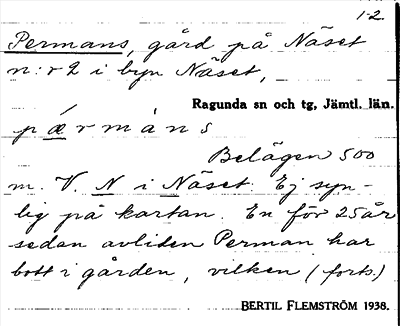 1-2.
Permans, gård på Näset
n:r 2 i byn Näset,
Ragunda sn och tg, Jämtl. län.
pǽrmàns
Belägen 500
m. V. N i Näset. Ej syn-
lig på kartan. En för 25 år
sedan avliden Perman har
bott i gården, vilken (forts.)
BERTIL FLEMSTRÖM 1938.